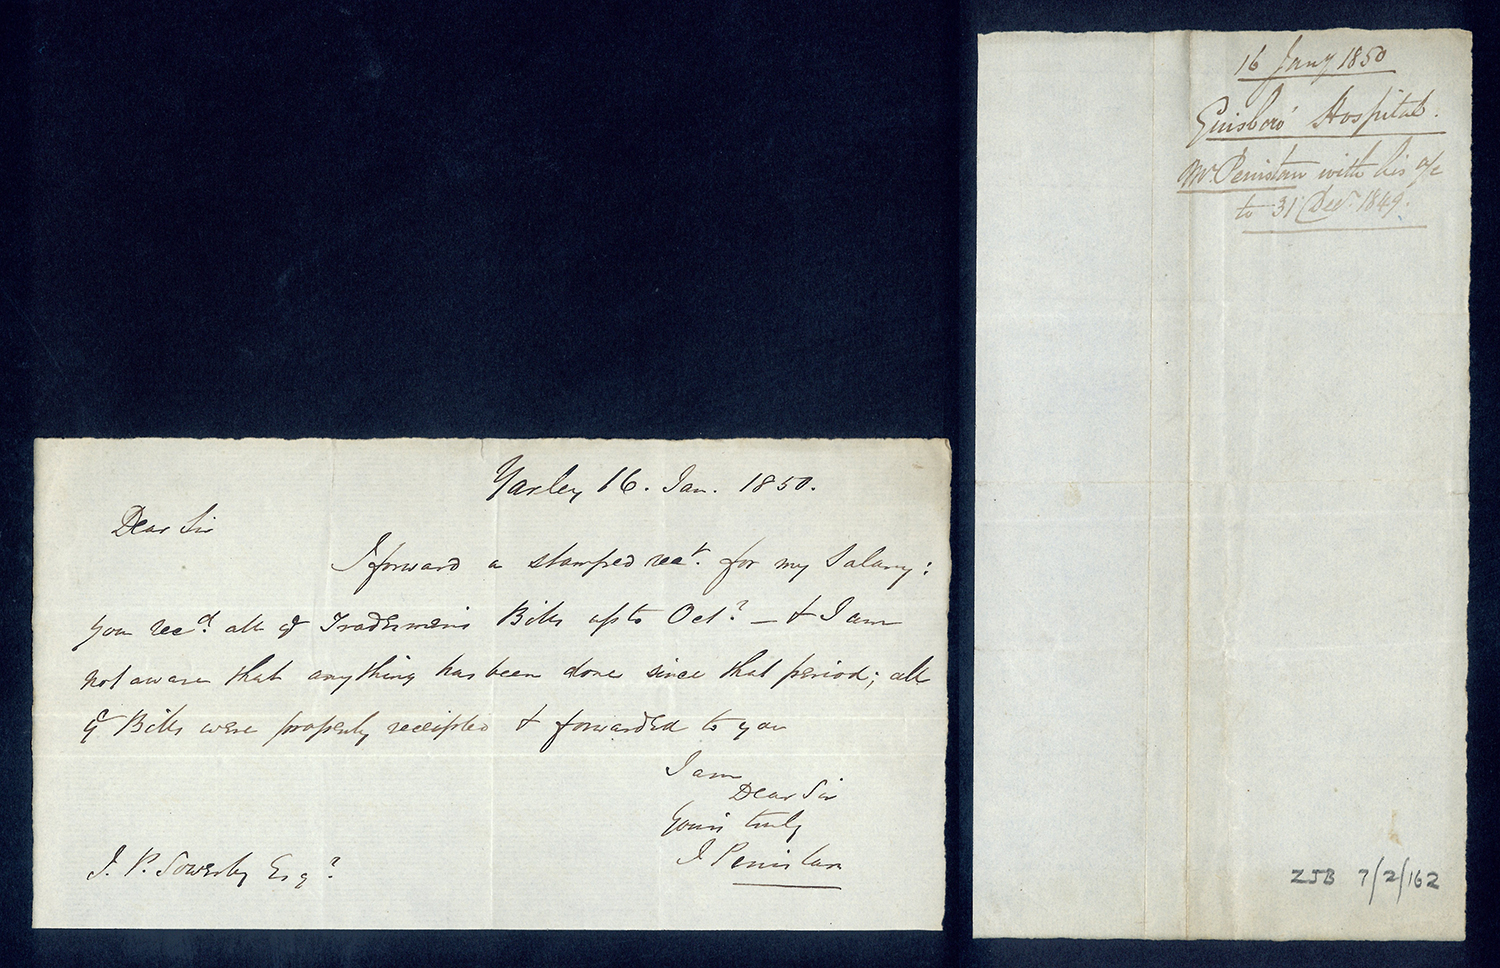 Yarley 16. Jan. 1850.
Dear Sir
I forward a stamped rect. for my Salary:
you recd. all ye Tradesmen's Bills up to Octr. — & I am
not aware that anything has been done since that period; all
ye Bills were properly receipted & forwarded to you
I am
Dear Sir
Yours truly
J Penistan
J. P. Sowerby Esqr.
16 Jany 1850
Guisboro' Hospital.
Mr Penistan with his a/c
to 31 Decr. 1849.
ZJB 7/2/162